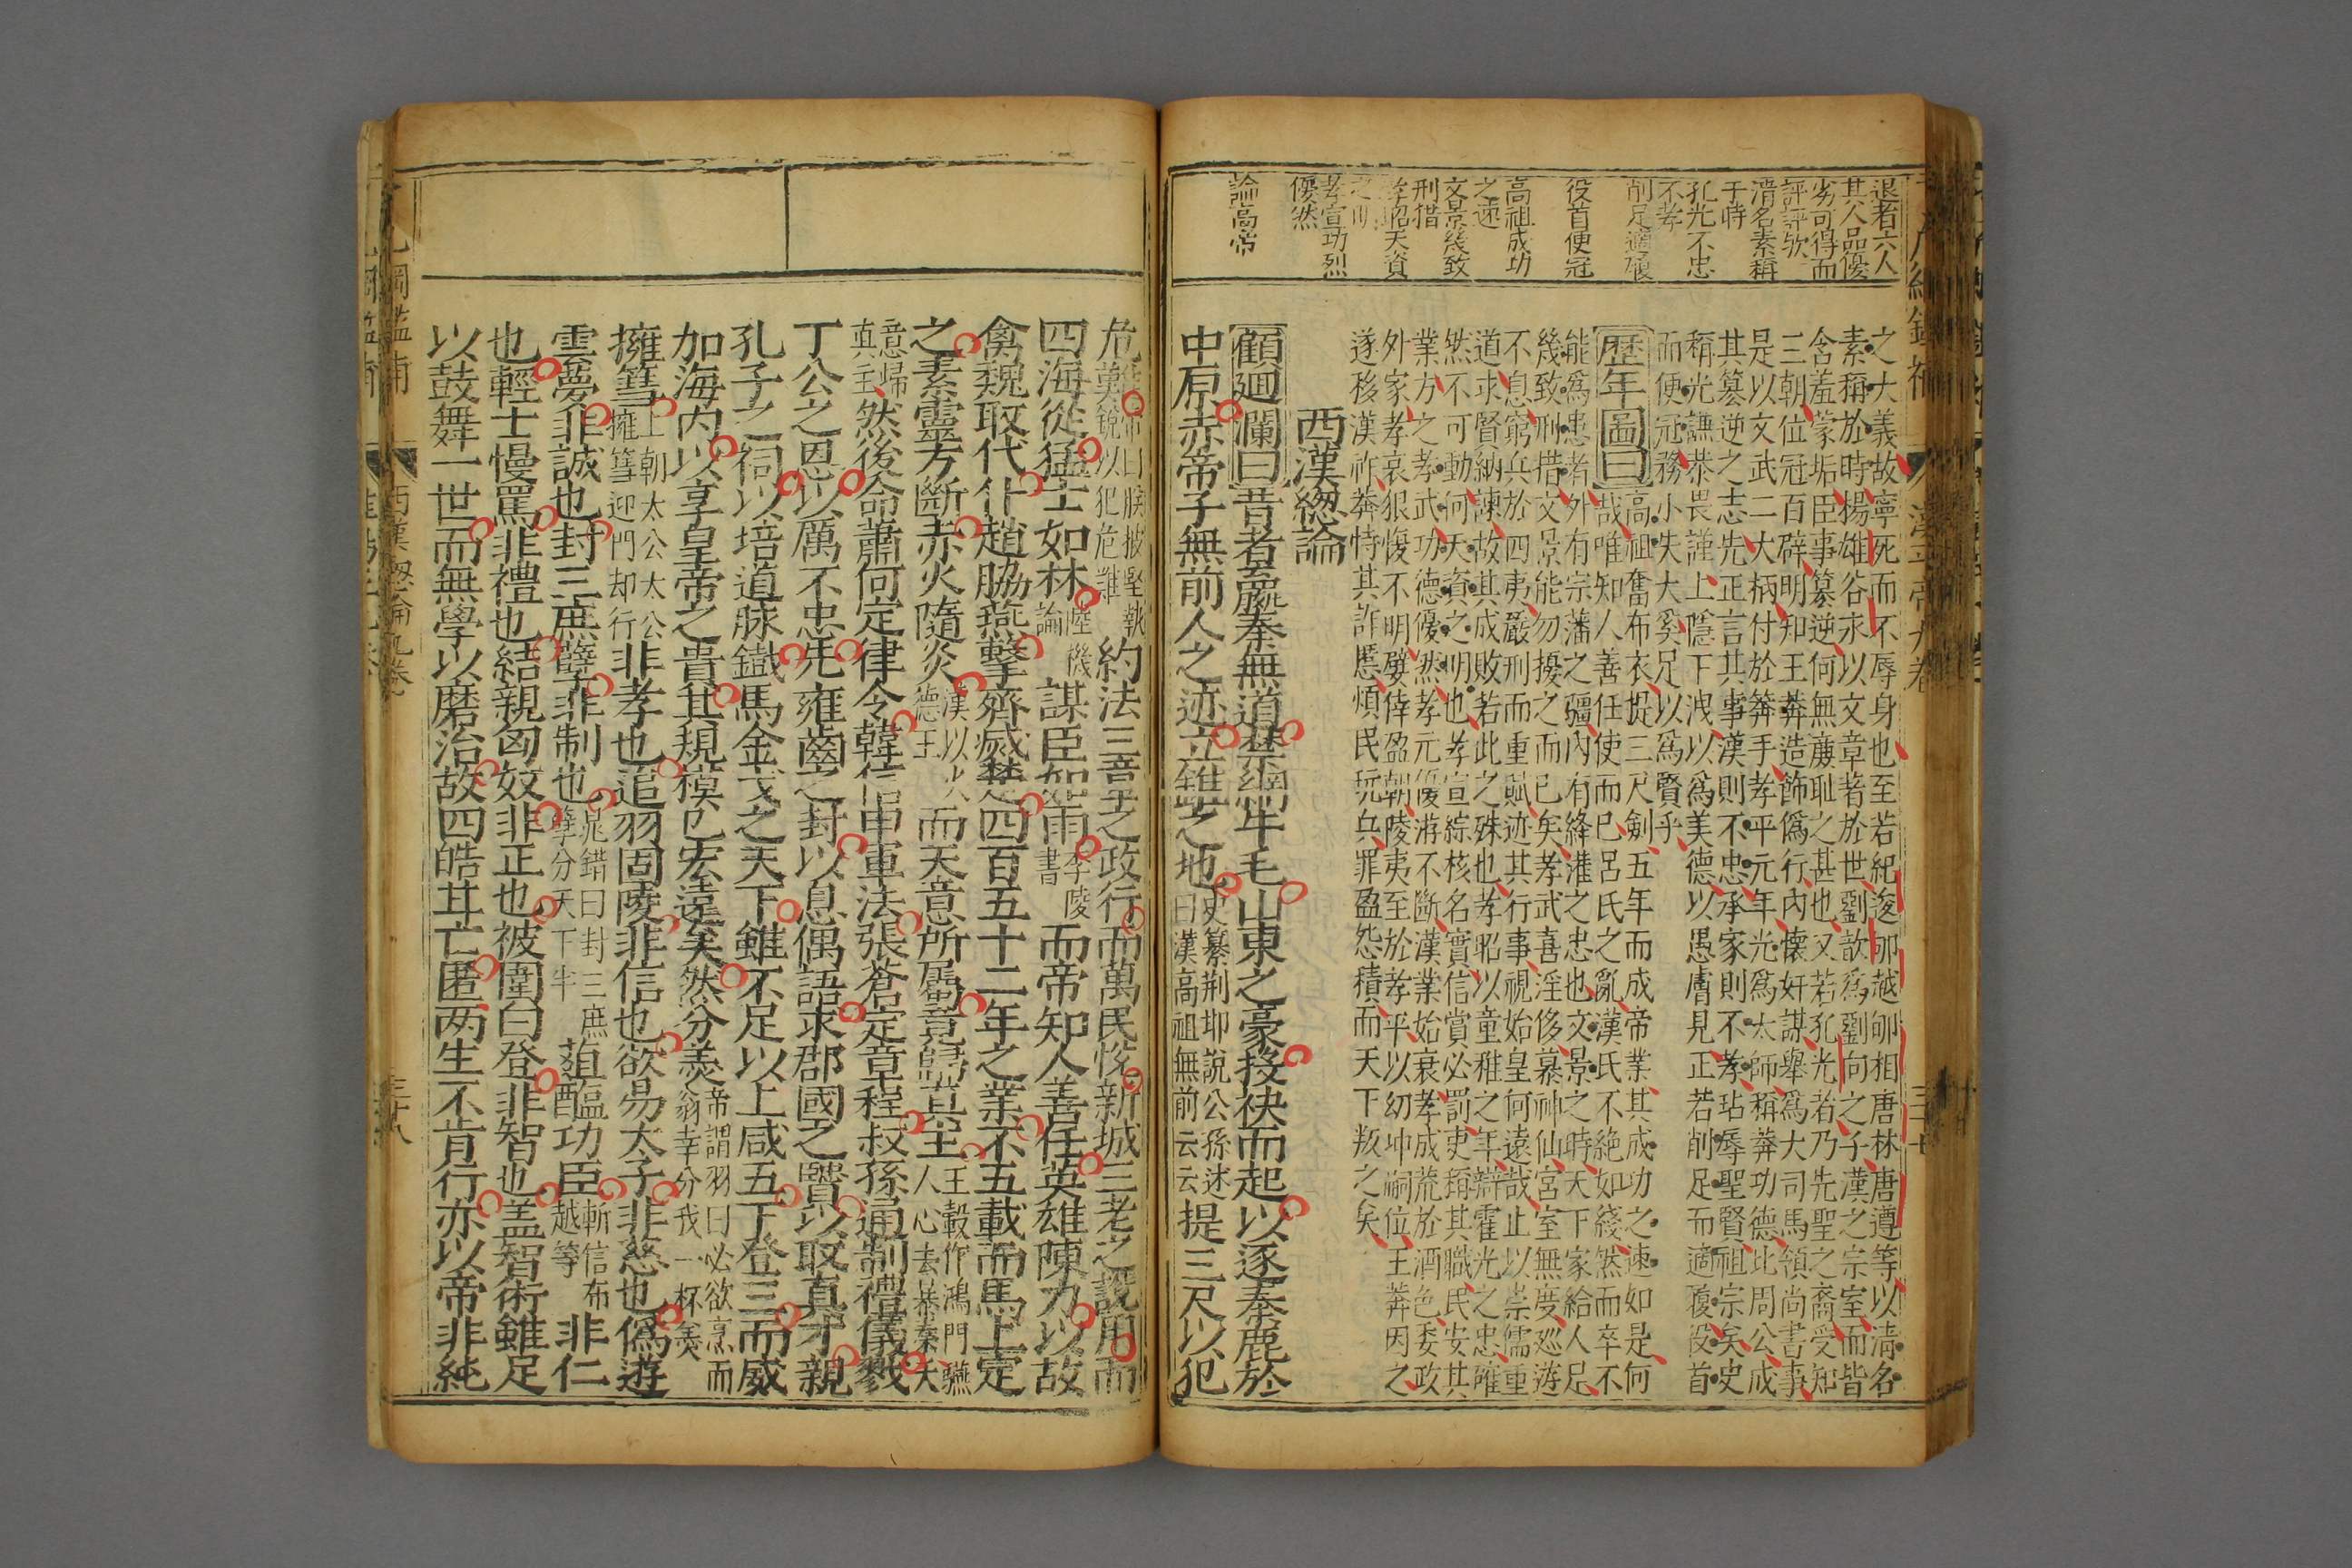 退者六人
其人品優
劣可得而
評評欤
清名素稱
于時
孔光不忠
不孝
削足適履
役首便冠
高祖成功
之速
文景幾致
刑措
孝昭天資
之明
孝宣功烈
優然
論高帝
之大義故寧死而不辱身也至若紀逡郇越郇相唐林唐遵等以清名
素稱於時揚雄谷永以文章著於世劉歆爲劉向之子漢之宗室而皆
含羞蒙垢臣事篡逆何無廉耻之甚也又若孔光者乃先聖之裔受知
三朝位冠百辟明知王莽造飾僞行内懷奸謀舉爲大司馬領尚書事
是以文武二大柄付於莽手孝平元年光爲太師稱莽功德比周公成
其篡逆之志先正言其事漢則不忠承家則不孝玷辱聖賢祖宗矣史
稱光謙恭畏謹上隱下洩以爲美德以愚膚見正若削足而適履役首
而便冠務小失大奚足以爲賢乎
歷年圖曰高祖奮布衣提三尺劍五年而成帝業其成功之速如是何
哉唯知人善任使而已呂氏之亂漢氏不絶如綫然而卒不
能爲患者外有宗藩之疆内有絳灌之忠也文景之時天下家給人足
幾致刑措文景能勿擾之而已矣孝武喜淫侈慕神仙宮室無度巡游
不息窮兵於四夷嚴刑而重賦迹其行事視始皇何遠哉止以崇儒重
道求賢納諫故其成敗若此之殊也孝昭以童稚之年辯霍光之忠確
然不可動何天資之明也孝宣綜核名實信賞必罰吏稱其職民安其
業方之孝武功德優然孝元優游不斷漢業始衰孝成荒於酒色委政
外家孝哀狠愎不明嬖倖盈朝陵夷至於孝平以幼冲嗣位王莽因之
遂移漢祚莽恃其詐慝煩民玩兵罪盈怨積而天下叛之矣
西漢總論
顧廻瀾曰昔者嬴秦無道禁網牛毛山東之豪投袂而起以逐秦鹿於
中原赤帝子無前人之迹立錐之地史纂荆邯說公孫述曰漢高祖無前云云提三尺以犯
危難帝曰朕披堅執銳以犯危難約法三章之政行而萬民悅新城三老之說用而
四海從猛士如林陸機論謀臣如雨李陵書而帝知人善任英雄陳力以故
禽魏取代仆趙脇燕擊齊滅楚四百五十二年之業不五載而馬上定
之素靈方斷赤火隨炎漢以火德王而天意所屬竟歸其主王轂作鴻門讌人心去暴秦天
意歸真主然後命蕭何定律令韓信申軍法張蒼定章程叔孫通制禮儀戮
丁公之恩以厲不忠先雍齒之封以息偶語求郡國之賢以取真才親
孔子之祠以培道脉鐵馬金戈之天下雖不足以上咸五下登三而威
加海内以享皇帝之貴其規模已宏遠矣然分羮帝謂羽曰必欲烹而翁幸分我一杯羮
擁篲上朝太公太公擁篲迎門却行非孝也追羽固陵非信也欲易太子非慈也僞遊
雲夢非誠也封三庶孽非制也晁錯曰封三庶孽分天下半葅醢功臣斬信布越等非仁
也輕士慢罵非禮也結親匈奴非正也被圍白登非智也盖智術雖足
以鼓舞一世而無學以磨治故四皓其亡匿两生不肯行亦以帝非純
西漢總論九卷